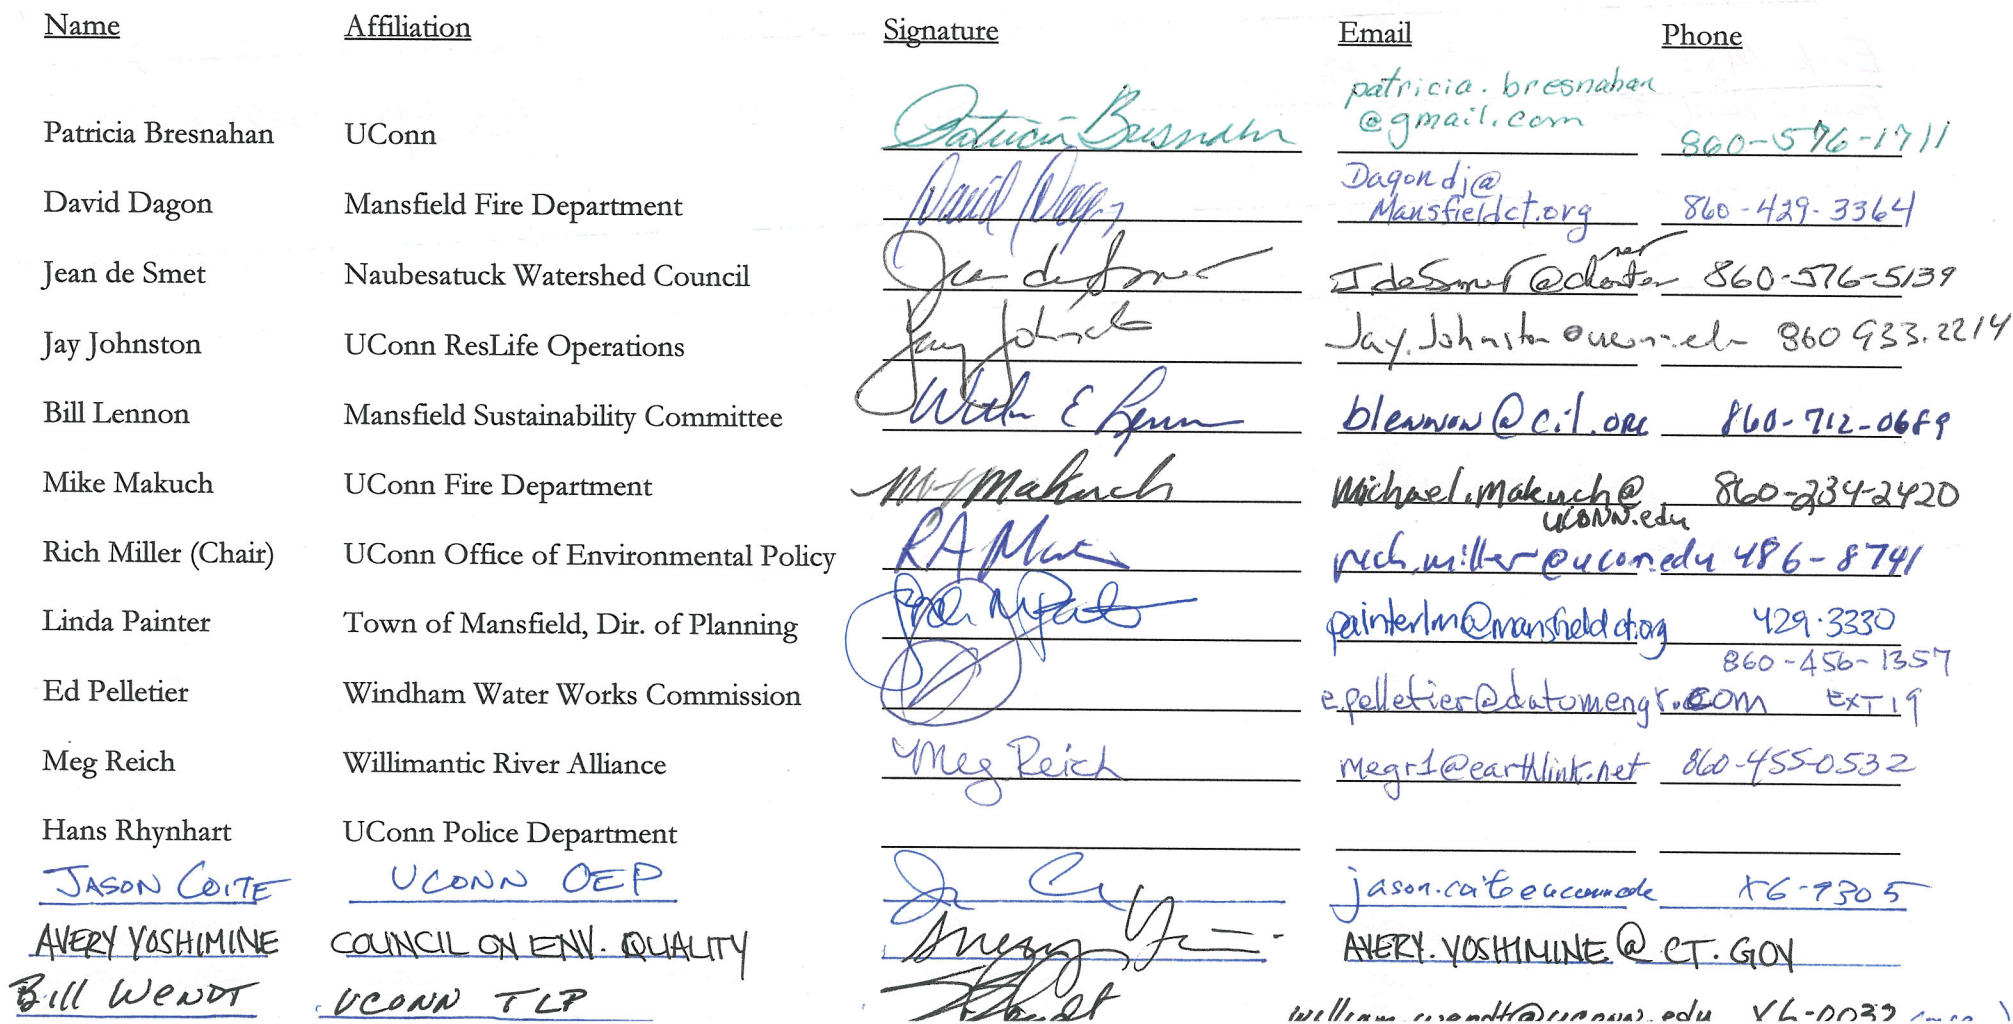 Name Affiliation Signature Email Phone
Patricia Bresnahan UConn Patricia Bresnahan patricia.bresnahan @gmail.com 860-576-1711
David Dagon Mansfield Fire Department David Dagon Dagondj@ Mansfieldct.org 860-429-3364
Jean de Smet Naubesatuck Watershed Council Jean de Smet JdeSmet@charter net 860-576-5139
Jay Johnston UConn ResLife Operations Jay Johnston Jay.Johnston@uconn.edu 860 933.2214
Bill Lennon Mansfield Sustainability Committee blennon@cil.org 860-712-0689
Mike Makuch UConn Fire Department Makuch Michael.Makuch@ UCONN.edu 860-234-2420
Rich Miller (Chair) UConn Office of Environmental Policy rich.miller@uconn.edu 486-8741
Linda Painter Town of Mansfield, Dir. of Planning painterlm@mansfieldct.org 429-3330
Ed Pelletier Windham Water Works Commission epelletier@datumengr.com 860-456-1357 EXT 19
Meg Reich Willimantic River Alliance Meg Reich megr1@earthlink.net 860-455-0532
Hans Rhynhart UConn Police Department
JASON COITE UCONN OEP jason.coite@uconn.edu x6-9305
AVERY YOSHIMINE COUNCIL ON ENV. QUALITY AVERY.YOSHIMINE@CT.GOV
Bill WENDT UCONN TLP william.wendt@uconn.edu